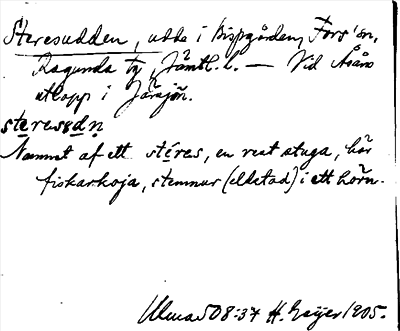 Steresudden, udde i Bispgården, Fors' sn,
Ragunda tg, Jämtl. l. — Vid Åsåns
utlopp i Järsjön.
steresødn
Namnet af ett stéres, en rast stuga, här
fiskarkoja, stemnur (eldstad) i ett hörn.
Ulma 508:37 H. Geijer 1905.